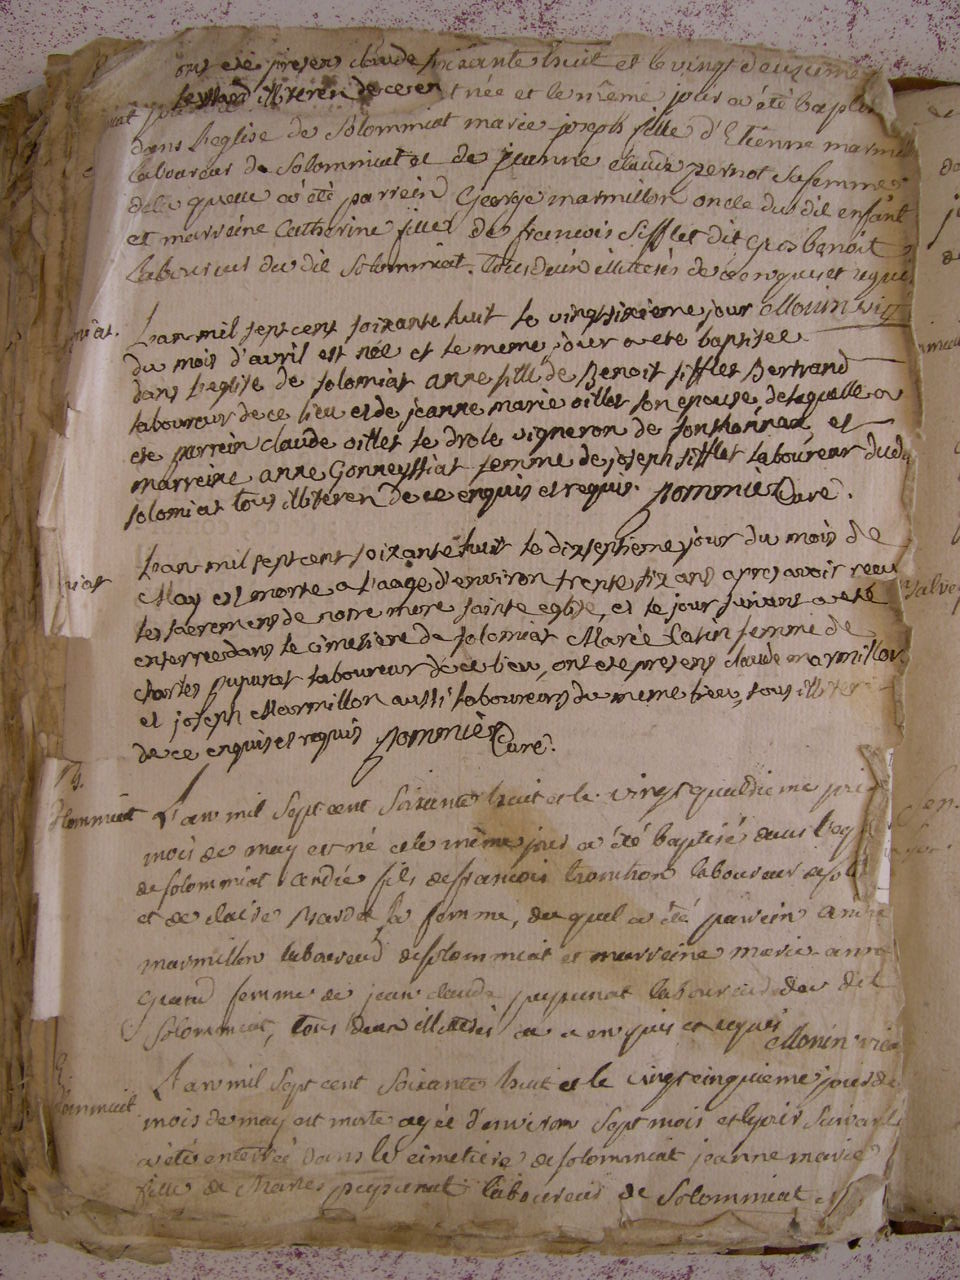 ont été presens claude soixante huit et le vingt deuxieme
illiteren de ce en née et le même jour a été baptisé
dans l'eglise de Solommiat marie joseph fille d'Etienne marmill
laboureur de Solommiat et de jeanne claude pernot sa femme
de la quelle a été parrein George marmillon oncle du dit enfant
et marreine Catherine fille de francois Sifflet dit gros benoit
laboureur du dit Solommiat. tous deux illiterés de ce enquis et requi
Monin vic
L'an mil sept cent soixante huit le vingtsixieme jour
du mois d'avril est née et le meme jour a ete baptisee
dans l'eglise de solomiat anne fille de Benoit sifflet Bertrand
laboureur de ce lieu et de jeanne marie oillet son epouse de laquelle a
ete parrein claude oillet le drole vigneron de et
marreine anne Gonneyssiat femme de joseph sifflet laboureur dudi
solomiat tous illiteren de ce enquis et requis. pommier Curé.
viat
L'an mil sept cent soixante huit le dixseptieme jour du mois de
May est morte a l'aage d'environ trente six ans apres avoir receu
les sacremens de notre mere sainte eglise, et le jour suivant a eté
enterree dans le cimetiere de solomiat Marie femme de
charles pupunat laboureur de ce lieu, ont ete presens claude marmillon
et joseph Marmillon aussi laboureurs du meme lieu, tous illiteré
de ce enquis et requis pommier Curé.
Solommiat
L'an mil sept cent soixante huit et le vingt
mois de may est né et le même jour a été baptisé dans l'eg
de solommiat andré fils de francois laboureur de sol
et de claire sa femme, du quel a été parrein andré
marmillon laboureur de solommiat et marreine marie anne
femme de jean claude pupunat laboureur du dit
Solommiat, tous deux illiterés de ce enquis et requis
Monin vic
Solommiat
L'an mil sept cent soixante huit et le vingt cinquieme jour de
mois de may est morte agée d'environ sept mois et le jour suivant
a été enterrée dans le cimetiere de solommiat jeanne marie
fille de charles pupunat laboureur de Solommiat